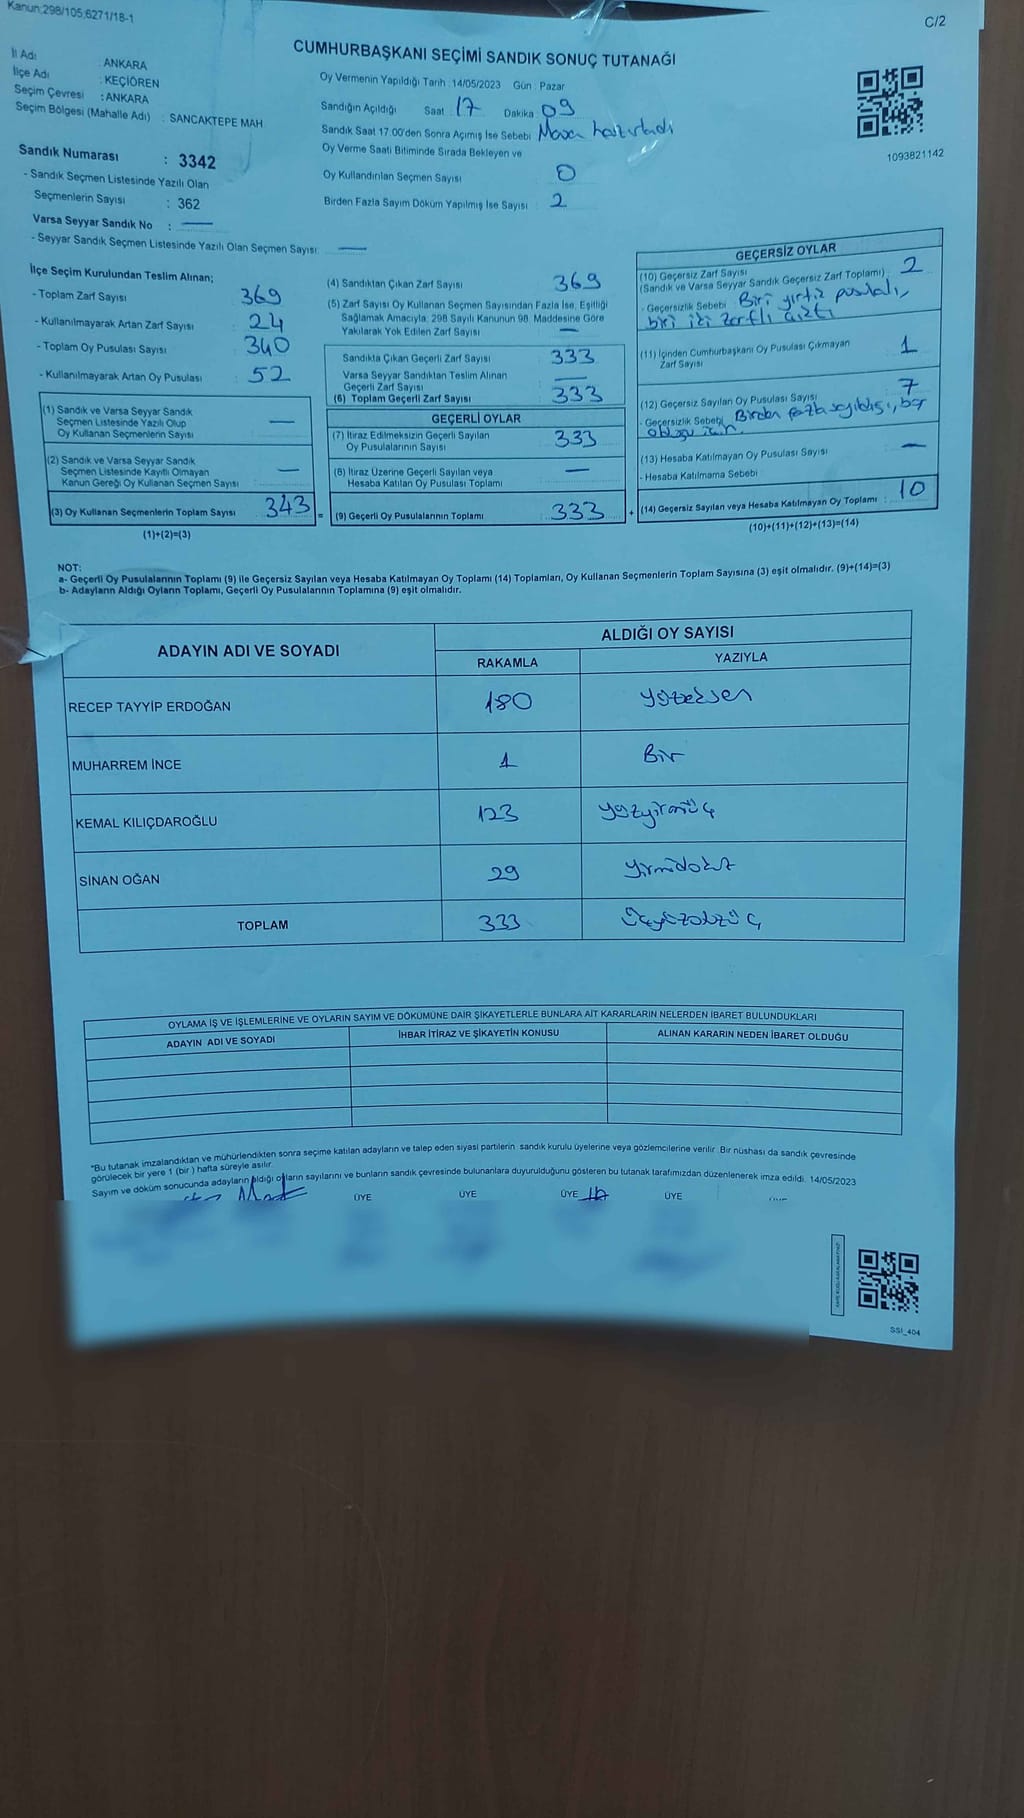 Kanun;298/105;6271/18-1
C/2
CUMHURBAŞKANI SEÇİMİ SANDIK SONUÇ TUTANAĞI
İl Adı : ANKARA
İlçe Adı : KEÇİÖREN
Seçim Çevresi : ANKARA
Seçim Bölgesi (Mahalle Adı) : SANCAKTEPE MAH
Oy Vermenin Yapıldığı Tarih :14/05/2023 Gün : Pazar
Sandığın Açıldığı Saat : 17 Dakika : 09
Sandık Saat 17.00'den Sonra Açımış İse Sebebi : Masa hazırladı
Oy Verme Saati Bitiminde Sırada Bekleyen ve
Oy Kullandırılan Seçmen Sayısı : 0
Birden Fazla Sayım Döküm Yapılmış İse Sayısı : 2
1093821142
Sandık Numarası : 3342
- Sandık Seçmen Listesinde Yazılı Olan
Seçmenlerin Sayısı : 362
Varsa Seyyar Sandık No : —
- Seyyar Sandık Seçmen Listesinde Yazılı Olan Seçmen Sayısı: —
İlçe Seçim Kurulundan Teslim Alınan;
- Toplam Zarf Sayısı : 369
- Kullanılmayarak Artan Zarf Sayısı : 24
- Toplam Oy Pusulası Sayısı : 340
- Kullanılmayarak Artan Oy Pusulası : 52
(1) Sandık ve Varsa Seyyar Sandık
Seçmen Listesinde Yazılı Olup
Oy Kullanan Seçmenlerin Sayısı : —
(2) Sandık ve Varsa Seyyar Sandık
Seçmen Listesinde Kayıtlı Olmayan
Kanun Gereği Oy Kullanan Seçmen Sayısı : —
(3) Oy Kullanan Seçmenlerin Toplam Sayısı : 343 =
(1)+(2)=(3)
(4) Sandıktan Çıkan Zarf Sayısı : 369
(5) Zarf Sayısı Oy Kullanan Seçmen Sayısından Fazla İse, Eşitliği
Sağlamak Amacıyla, 298 Sayılı Kanunun 98. Maddesine Göre
Yakılarak Yok Edilen Zarf Sayısı : —
Sandıkta Çıkan Geçerli Zarf Sayısı : 333
Varsa Seyyar Sandıktan Teslim Alınan
Geçerli Zarf Sayısı : —
(6) Toplam Geçerli Zarf Sayısı : 333
GEÇERLİ OYLAR
(7) İtiraz Edilmeksizin Geçerli Sayılan
Oy Pusulalarının Sayısı : 333
(8) İtiraz Üzerine Geçerli Sayılan veya
Hesaba Katılan Oy Pusulası Toplamı : —
(9) Geçerli Oy Pusulalarının Toplamı : 333 +
GEÇERSİZ OYLAR
(10) Geçersiz Zarf Sayısı
(Sandık ve Varsa Seyyar Sandık Geçersiz Zarf Toplamı) : 2
- Geçersizlik Sebebi : Biri yırtız pusulalı,
biri iki zarflı çıktı
(11) İçinden Cumhurbaşkanı Oy Pusulası Çıkmayan
Zarf Sayısı : 1
(12) Geçersiz Sayılan Oy Pusulası Sayısı : 7
- Geçersizlik Sebebi : Birden fazla boş
olduğu için.
(13) Hesaba Katılmayan Oy Pusulası Sayısı : —
- Hesaba Katılmama Sebebi
(14) Geçersiz Sayılan veya Hesaba Katılmayan Oy Toplamı : 10
(10)+(11)+(12)+(13)=(14)
NOT:
a- Geçerli Oy Pusulalarının Toplamı (9) ile Geçersiz Sayılan veya Hesaba Katılmayan Oy Toplamı (14) Toplamları, Oy Kullanan Seçmenlerin Toplam Sayısına (3) eşit olmalıdır. (9)+(14)=(3)
b- Adayların Aldığı Oyların Toplamı, Geçerli Oy Pusulalarının Toplamına (9) eşit olmalıdır.
ADAYIN ADI VE SOYADI
ALDIĞI OY SAYISI
RAKAMLA YAZIYLA
RECEP TAYYİP ERDOĞAN 180 yüzseksen
MUHARREM İNCE 1 Bir
KEMAL KILIÇDAROĞLU 123 yüzyirmiüç
SİNAN OĞAN 29 yirmidokuz
TOPLAM 333 üçyüzotuzüç
OYLAMA İŞ VE İŞLEMLERİNE VE OYLARIN SAYIM VE DÖKÜMÜNE DAİR ŞİKAYETLERLE BUNLARA AİT KARARLARIN NELERDEN İBARET BULUNDUKLARI
ADAYIN ADI VE SOYADI İHBAR İTİRAZ VE ŞİKAYETİN KONUSU ALINAN KARARIN NEDEN İBARET OLDUĞU
*Bu tutanak imzalandıktan ve mühürlendikten sonra seçime katılan adayların ve talep eden siyasi partilerin sandık kurulu üyelerine veya gözlemcilerine verilir. Bir nüshası da sandık çevresinde
görülecek bir yere 1 (bir ) hafta süreyle asılır.
Sayım ve döküm sonucunda adayların aldığı oyların sayılarını ve bunların sandık çevresinde bulunanlara duyurulduğunu gösteren bu tutanak tarafımızdan düzenlenerek imza edildi. 14/05/2023
ÜYE ÜYE ÜYE ÜYE
SSI_404